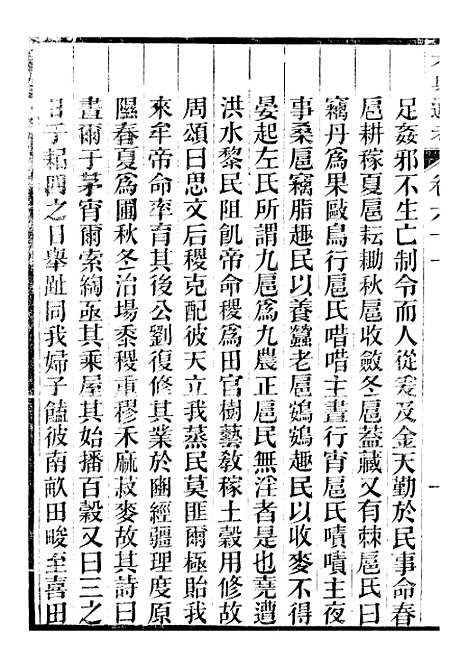 足姦邪不生亡制令而人從爰及金天勤於民事命春
扈耕稼夏扈耘耡秋扈收斂冬扈蓋藏又有棘扈氏曰
竊丹爲果敺鳥行扈氏唶唶主晝行宵扈氏嘖嘖主夜
事桑扈竊脂趣民以養蠶老扈鴳鴳趣民以收麥不得
晏起左氏所謂九扈爲九農正扈民無淫者是也堯遭
洪水黎民阻飢帝命稷爲田官樹藝敎稼土穀用修故
周頌曰思文后稷克配彼天立我蒸民莫匪爾極貽我
來牟帝命率育其後公劉復修其業於豳經疆理度原
隰春夏爲圃秋冬治場黍稷重穋禾麻叔麥故其詩曰
晝爾于茅宵爾索綯亟其乘屋其始播百穀又曰三之
日于耜四之日舉趾同我婦子饁彼南畝田畯至喜田